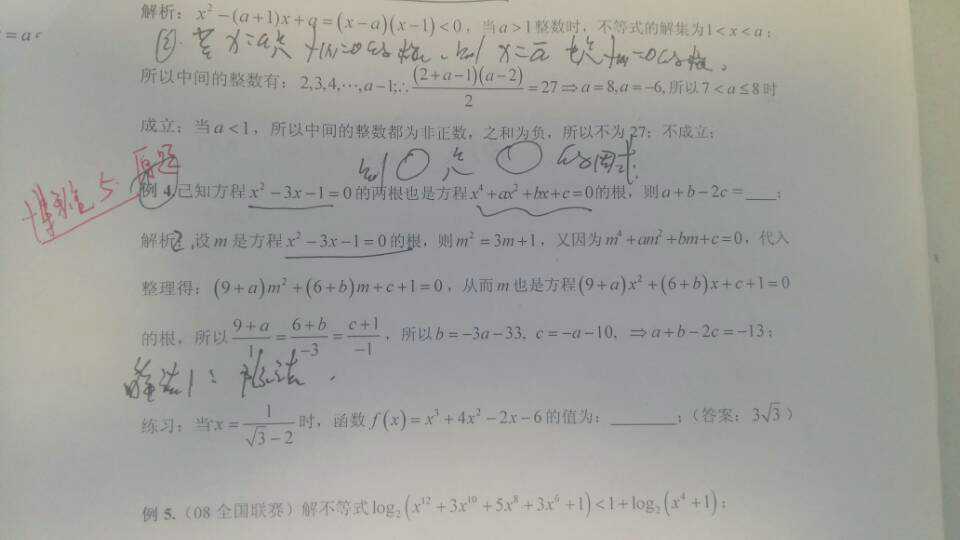 解析：x²-(a+1)x+a=(x-a)(x-1)<0，当a>1整数时，不等式的解集为1<x<a；
所以中间的整数有：2,3,4,⋯,a-1;∴(2+a-1)(a-2)/2=27⇒a=8,a=-6,所以7<a≤8时
成立；当a<1，所以中间的整数都为非正数，之和为负，所以不为27；不成立；
原题
例 4.已知方程x²-3x-1=0的两根也是方程x⁴+ax²+bx+c=0的根，则a+b-2c=___；
解析2.设m是方程x²-3x-1=0的根，则m²=3m+1，又因为m⁴+am²+bm+c=0，代入
整理得：(9+a)m²+(6+b)m+c+1=0，从而m也是方程(9+a)x²+(6+b)x+c+1=0
的根，所以(9+a)/1=(6+b)/-3=(c+1)/-1，所以b=-3a-33, c=-a-10, ⇒a+b-2c=-13；
练习：当x=1/(√3-2)时，函数f(x)=x³+4x²-2x-6的值为：________；（答案：3√3）
例 5.（08 全国联赛）解不等式log₂(x¹²+3x¹⁰+5x⁸+3x⁶+1)<1+log₂(x⁴+1)；